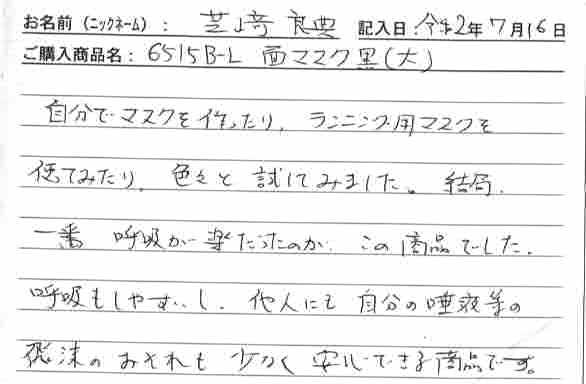 お名前（ニックネーム）： 芝﨑 良典 記入日：令和2年 7月16日
ご購入商品名： 6515B-L 面マスク黒（大）
自分でマスクを作ったり、ランニング用マスクを
使てみたり、色々と試してみました。結局、
一番 呼吸が楽だったのが、この商品でした。
呼吸もしやすいし、他人にも自分の唾液等の
飛沫のおそれも少なく安心できる商品です。